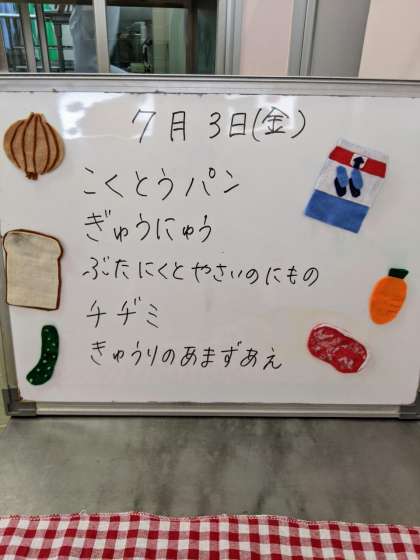 7月3日(金)
こくとうパン
ぎゅうにゅう
ぶたにくとやさいのにもの
チヂミ
きゅうりのあまずあえ